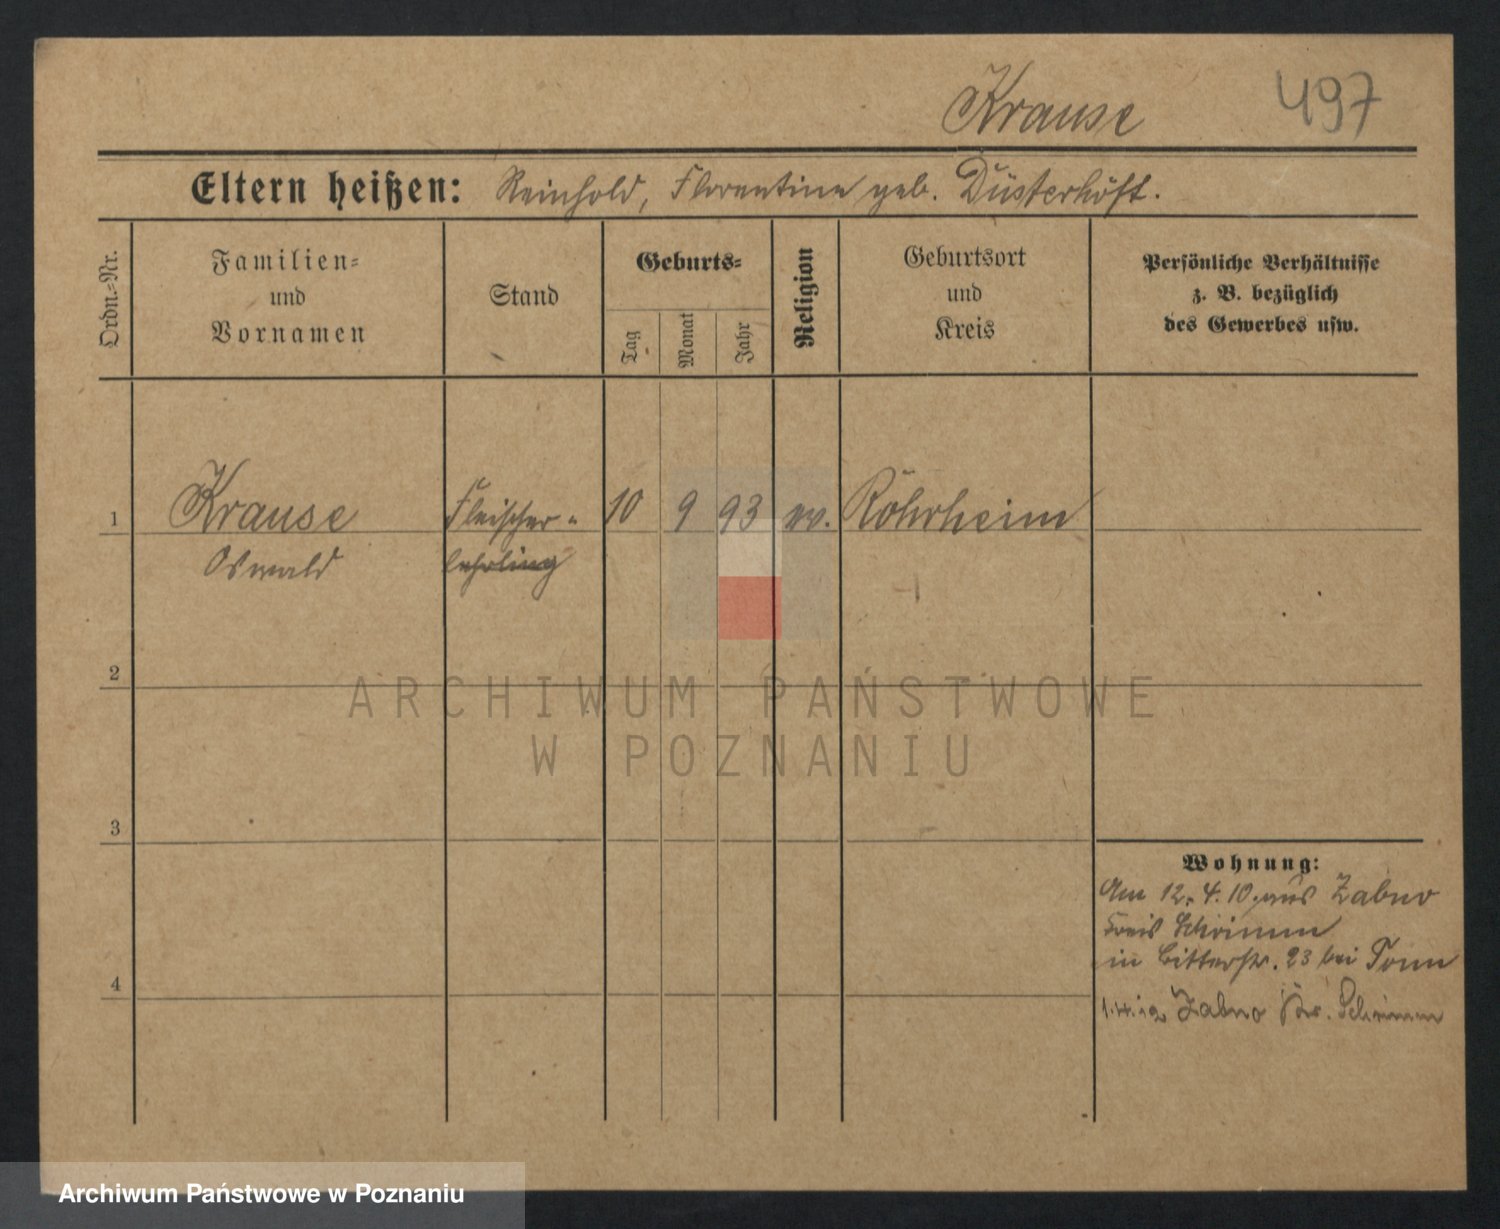 Krause 497
Eltern heißen: Reinhold, Florentine geb. Düsterhöft.
Ordn.-Nr.
Familien-
und
Vornamen
Stand
Geburts-
Tag
Monat
Jahr
Religion
Geburtsort
und
Kreis
Persönliche Verhältnisse
z. B. bezüglich
des Gewerbes usw.
1 Krause Fleischer- 10 9 93 ev. Röhrheim
Oswald lehrling
2
ARCHIWUM PAŃSTWOWE
W POZNANIU
3
Wohnung:
Am 12.4.10 aus Zabno
Kreis Schrimm
in Ritterstr. 23 bei Tonn
4
1.4.12 Zabno Kr. Schrimm
Archiwum Państwowe w Poznaniu